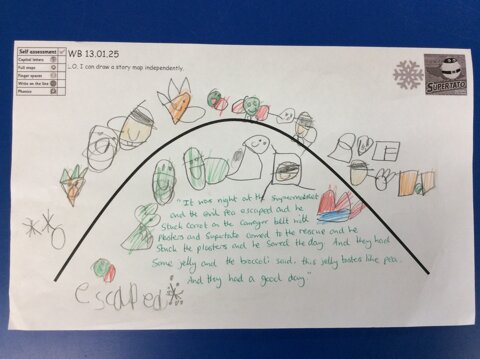 Self assessment
Capital letters
Full stops
Finger spaces
Write on the line
Phonics
WB 13.01.25
L.O. I can draw a story map independently.
SUPERTATO
"It was night at the Supermarket
and the evil pea escaped and he
Stuck Carrot on the Conveyor belt with
Plasters and Supertato comed to the rescue and he
Stuck the plasters and he Saved the day. And they had
Some jelly and the broccoli said, this jelly tastes like pea.
And they had a good day"
escaped